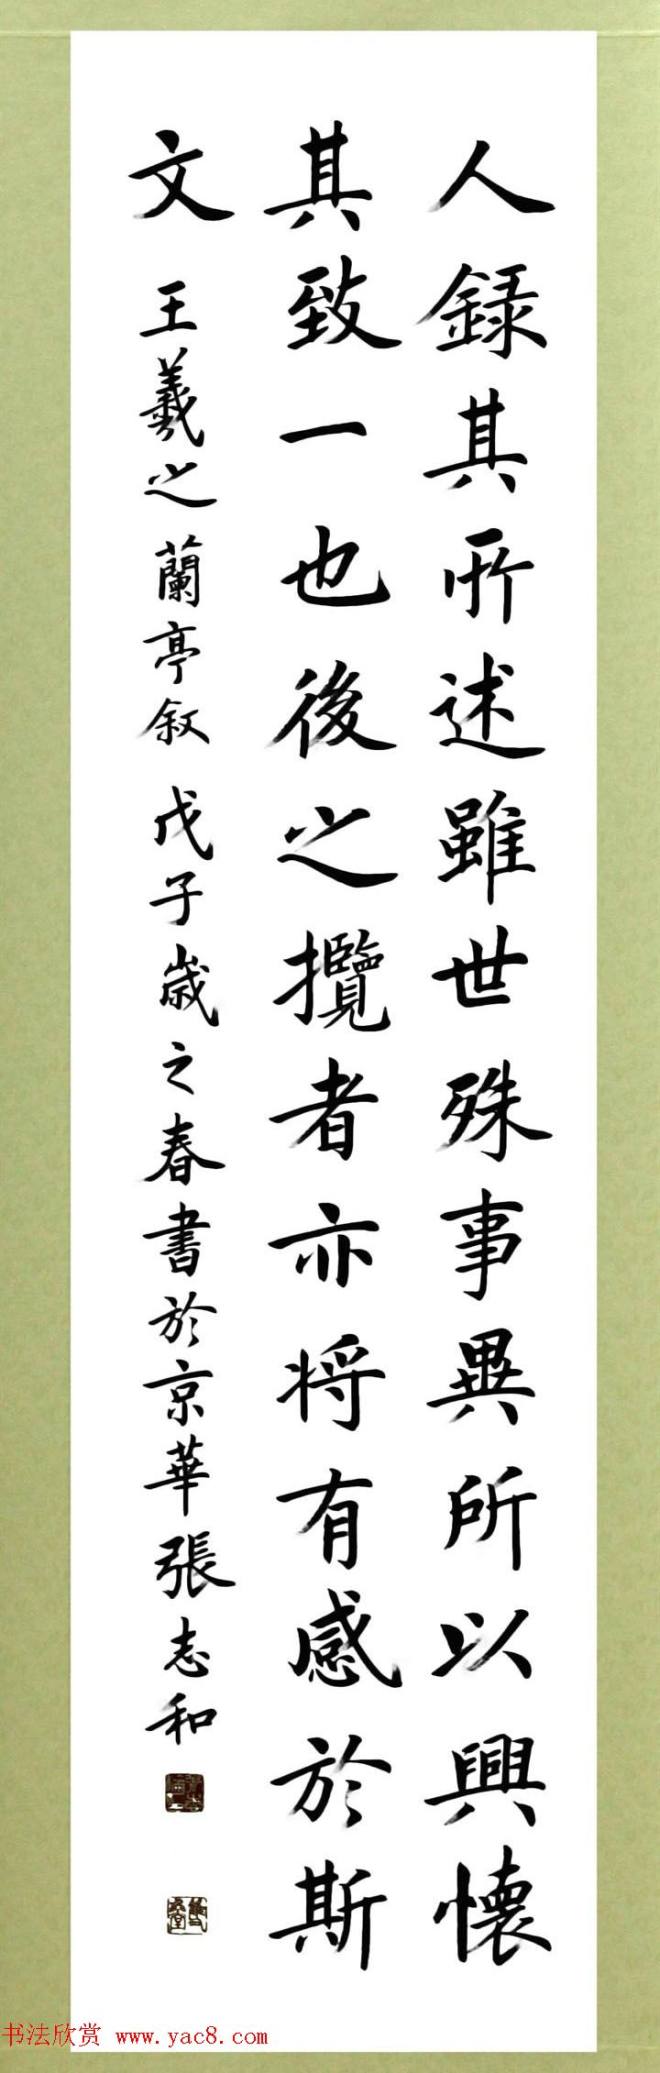 人録其所述雖世殊事異所以興懷
其致一也後之攬者亦将有感於斯
文 王羲之蘭亭叙 戊子歲之春書於京華張志和
书法欣赏 www.yac8.com